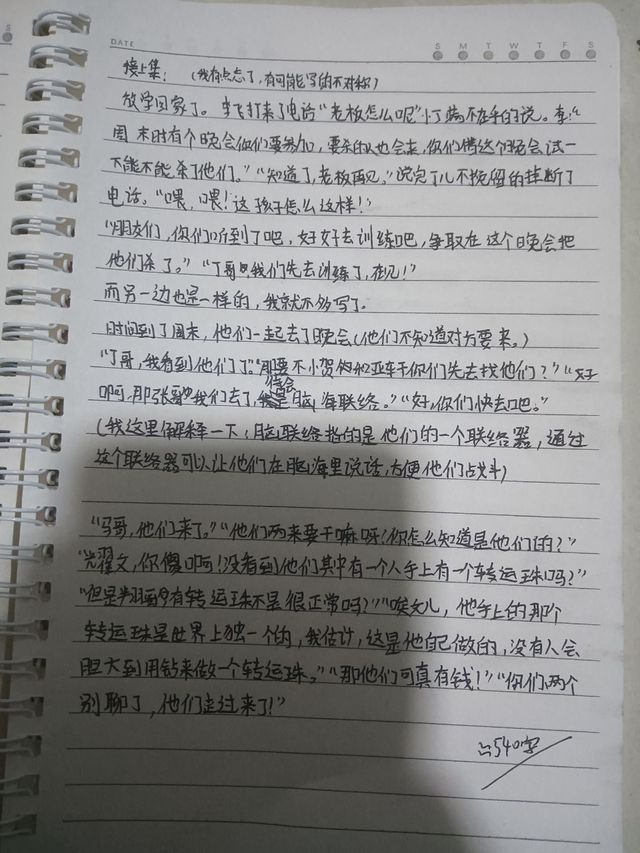 DATE
S M T W T F S
接上集：（我有点忘了，有可能写的不对称）
放学回家了。李飞打来了电话“老板怎么呢”小丁满不在乎的说。李：“
周末时有个晚会你们要参加，要杀的人也会来，你们借这个晚会试一
下能不能杀了他们。”“知道了，老板再见。”说完丁儿不挽留的挂断了
电话。“喂，喂！这孩子怎么这样！”
“朋友们，你们听到了吧，好好去训练吧，争取在这个晚会把
他们杀了。”“丁哥，我们先去训练了，在见！”
而另一边也是一样的，我就不多写了。
时间到了周末，他们一起去了晚会（他们不知道对方要来。）
“丁哥，我看到他们了。”“那要不小贺和亚轩你们先去找他们？”“好
啊，那张哥我们去了，待会脑海联络。”“好，你们快去吧。”
（我这里解释一下：脑联络指的是他们的一个联络器，通过
这个联络器可以让他们在脑海里说话，方便他们战斗）
“马哥，他们来了。”“他们两来要干嘛呀？你怎么知道是他们的？”
“翟文，你傻啊！没看到他们其中有一个人手上有一个转运珠吗？”
“但是有转运珠不是很正常吗？”“唉文儿，他手上的那个
转运珠是世界上独一个的，我估计，这是他自己做的，没有人会
胆大到用钻来做一个转运珠。”“那他们可真有钱！”“你们两个
别聊了，他们走过来了！”
540字